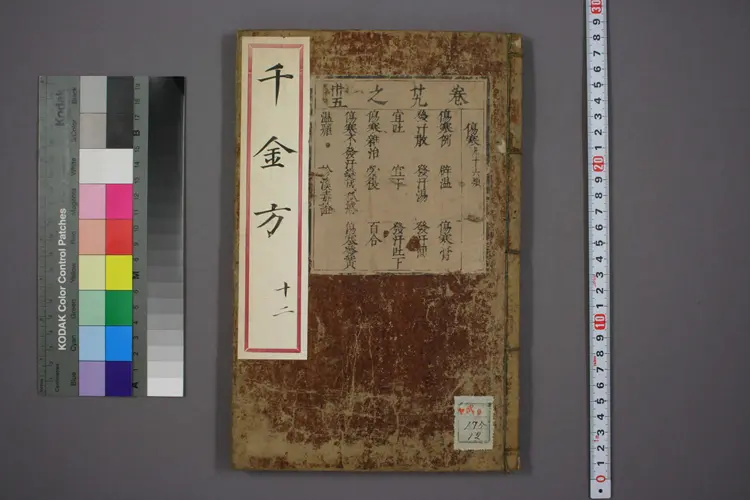 千金方
十二
卷
廿九
之
卅五
傷寒
傷寒例 辟温 傷寒膏
發汗散 發汗湯 發汗丸
宜吐 宜下 發汗吐下
傷寒雜治 勞復 百合
傷寒不發汗變成狐惑 傷寒發黃
温瘧
KODAK Color Control Patches
Kodak
Blue
Cyan
Green
Yellow
Red
Magenta
White
Black
A
M
B
0
1 2 3 4 5 6 7 8 9
10
1 2 3 4 5 6 7 8 9
20
1 2 3 4 5 6 7 8 9
30